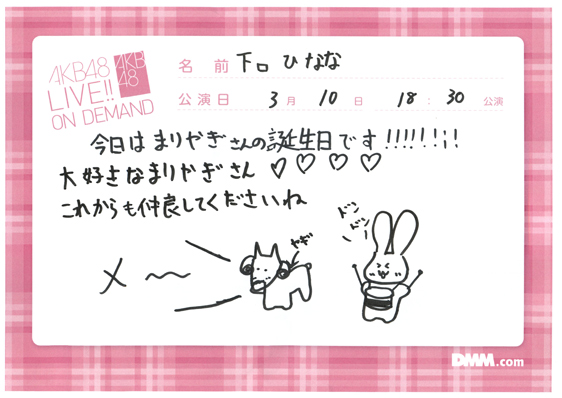 AKB48
LIVE!!
ON DEMAND
AKB
48
名 前 下口 ひなな
公演日 3月 10日 18:30 公演
今日は まりやぎさんの誕生日です!!!!!!!!
大好きなまりやぎさん♡♡♡♡
これからも仲良してくださいね
メ〜
ヤギ
ドン
ドン
DMM.com